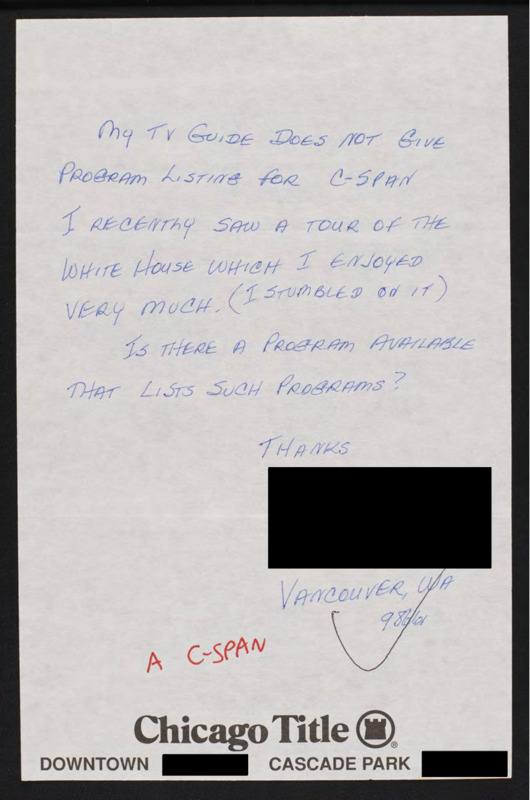 My TV GUIDE DOES NOT GIVE
PROGRAM LISTING FOR C-SPAN
I RECENTLY SAW A TOUR OF THE
WHITE HOUSE WHICH I ENJOYED
VERY MUCH. (I STUMBLED ON IT)
IS THERE A PROGRAM AVAILABLE
THAT LISTS SUCH PROGRAMS?
THANKS
VANCOUVER, WA
A C-SPAN
Chicago Title ®
DOWNTOWN CASCADE PARK